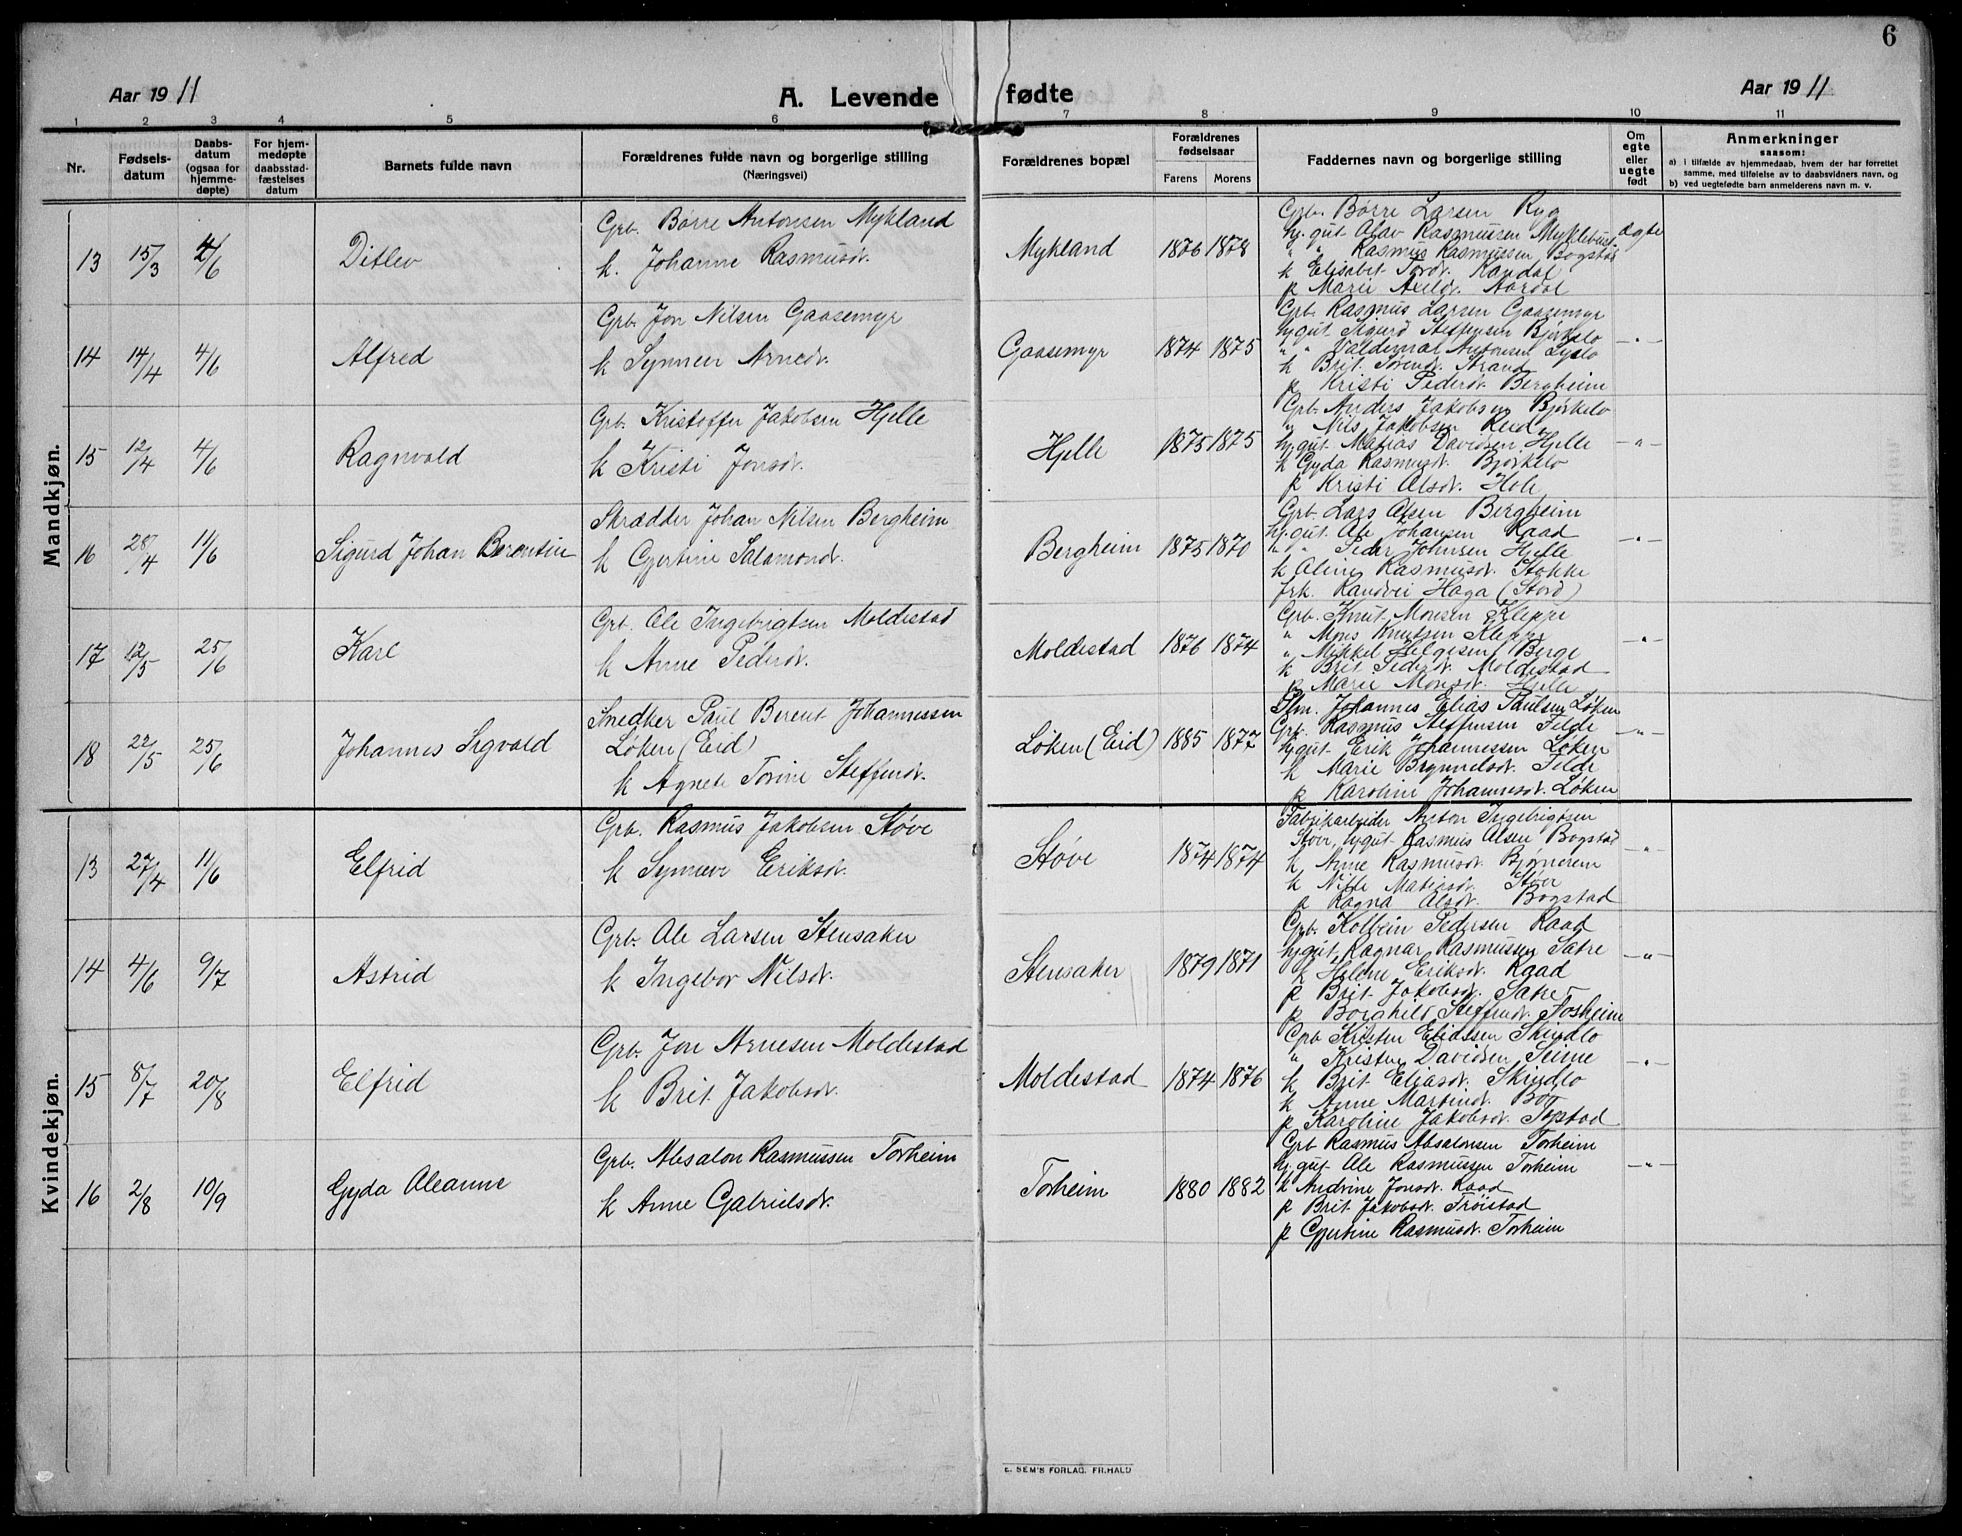 6
Aar 1911
A. Levende fødte
Aar 1911
1 2 3 4 5 6 7 8 9 10 11
Nr.
Fødsels-
datum
Daabs-
datum
(ogsaa for
hjemme-
døpte)
For hjem-
medøpte
daabsstad-
fæstelses
datum
Barnets fulde navn
Forældrenes fulde navn og borgerlige stilling
(Næringsvei)
Forældrenes bopæl
Forældrenes
fødselsaar
Farens Morens
Faddernes navn og borgerlige stilling
Om
egte
eller
uegte
født
Anmerkninger
saasom:
a) i tilfælde av hjemmedaab, hvem der har forrettet
samme, med tilføielse av to daabsvidners navn, og
b) ved uegtefødte barn anmelderens navn m. v.
Mandkjøn.
13 15/3 4/6 Ditlev
Grb. Børre Antonsen Mykland
k. Johanne Rasmusdr.
Mykland 1876 1878
Grb. Børre Larsen Ryg
hj.gut Olav Rasmussen Myklebust
" " Rasmus Rasmussen Bogstad
k Elisabet Tordr. Kandal
p Marie Axeldr. Aardal
ægte
14 14/4 4/6 Alfred
Grb. Jon Nilsen Gaasemyr
k Synneve Arnedr.
Gaasemyr 1874 1875
Grb. Rasmus Larsen Gaasemyr
hj.gut Sigurd Steffensen Bjørkelo
" " Valdemal Antonsen Lyslo
k Brit Sørendr. Strand
p Kristi Pederdr. Bergheim
—"—
15 12/4 4/6 Ragnvald
Grb. Kristoffer Jakobsen Hjelle
k Kristi Jonsdr.
Hjelle 1875 1875
Grb. Anders Jakobsen Bjørkelo
" Nils Jakobsen Reed
hj.gut Matias Davidsen Hjelle
k Gyda Rasmusdr. Bjørkelo
p Kristi Olsdr. Hole
—"—
16 28/4 11/6 Sigurd Johan Berentin
Skrædder Johan Nilsen Bergheim
k Gjertine Salamondr.
Bergheim 1875 1870
Grb. Lars Olsen Bergheim
hj.gut Ole Johansen Raad
" " Peder Johnsen Hjelle
k Oline Rasmusdr. Stokke
frk. Randvei Haga (Stord)
—"—
17 12/5 25/6 Karl
Grb. Ole Ingebrigtsen Moldestad
k Anne Pederdr.
Moldestad 1876 1874
Grb. Knut Monsen Kleppe
" Mons Knutsen Kleppe
" Mikkel Helgesen Berge
k Brit Pederdr. Moldestad
p Marie Monsdr. Hjelle
—"—
18 22/5 25/6 Johannes Sigvald
Snedker Paul Berent Johannessen
Løken (Eid)
k Agnete Tomine Steffendr.
Løken (Eid) 1885 1877
Johannes Elias Paulsen Løken
Grb. Rasmus Steffensen Felde
hj.gut Erik Johannessen Løken
k Marie Brynnelsdr. Felde
p Karoline Johannesdr. Løken
—"—
Kvindekjøn.
13 27/4 11/6 Elfrid
Grb. Rasmus Jakobsen Støve
k Synneve Eriksdr.
Støve 1874 1874
Fabrikarbeider Anton Ingebrigtsen
Støve, hj.gut Rasmus Olsen Bogstad
k Anne Rasmusdr. Bjørnerem
k Nille Matiasdr. Støve
p Ragna Olsdr. Bogstad
—"—
14 4/6 9/7 Astrid
Grb. Ole Larsen Stensaker
k Ingebor Nilsdr.
Stensaker 1879 1871
Grb. Kolbein Pedersen Raad
hj.gut Ragnar Rasmussen Sætre
k Helene Eriksdr. Raad
p Brit Jakobsdr. Sætre
p Borghild Steffendr. Fosheim
—"—
15 8/7 20/8 Elfrid
Grb. Jon Arnesen Moldestad
k Brit Jakobsdr.
Moldestad 1874 1876
Grb Kristen Eliassen Skindlo
" Kristen Davidsen Seime
k Brit Eliasdr. Skindlo
k Anne Martindr. Bø
p Karoline Jakobsdr. Topstad
—"—
16 2/8 10/9 Gyda Oleanne
Grb. Absalon Rasmussen Torheim
k Anne Gabrielsdr.
Torheim 1880 1882
Grb Rasmus Absalonsen Torheim
hj.gut Ole Rasmussen Torheim
k Andrine Jonsdr. Raad
p Brit Jakobsdr. Trøistad
p Gjertine Rasmusdr. Torheim
—"—
E. SEM'S FORLAG. FR.HALD